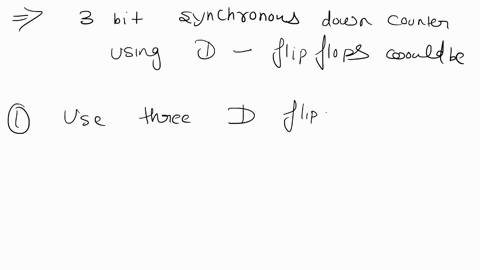 ⇒ 3 bit synchronous down counter
using D - flip flops would be
① Use three D flip